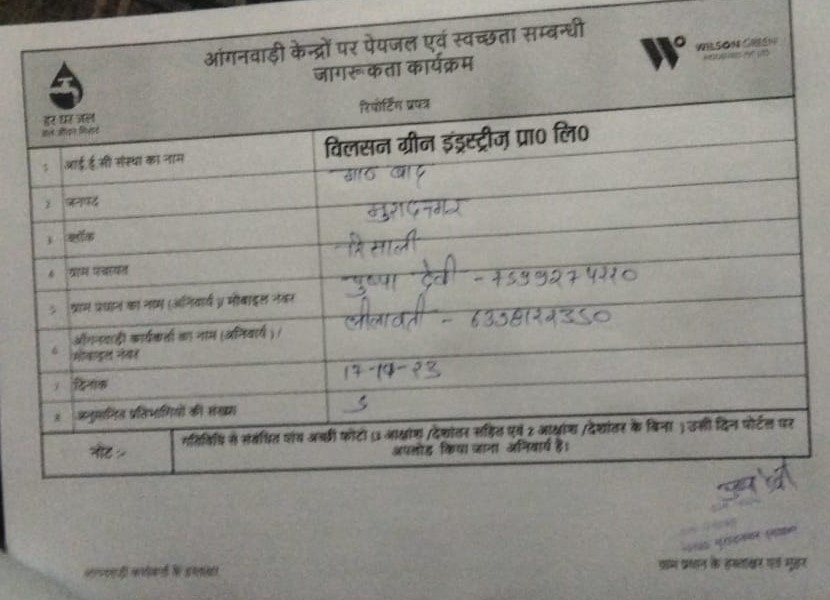 आंगनवाड़ी केन्द्रों पर पेयजल एवं स्वच्छता सम्बन्धी
जागरूकता कार्यक्रम
रिपोर्टिंग प्रपत्र
हर घर जल
WILSON GREEN
1 आई.ई.सी संस्था का नाम विलसन ग्रीन इंड्रस्ट्रीज़ प्रा0 लि0
2 जनपद
3 ब्लॉक मुरादनगर
4 ग्राम पंचायत रिसाली
5 ग्राम प्रधान का नाम (अनिवार्य)/ मोबाइल नंबर पुष्पा देवी -
6 आँगनवाड़ी कार्यकर्ता का नाम (अनिवार्य)/ लीलावती -
मोबाइल नंबर
7 दिनांक
8 अनुमानित प्रतिभागियों की संख्या
नोट :- गतिविधि से संबंधित पांच अच्छी फोटो (3 आक्षांश /देशांतर सहित एवं 2 आक्षांश /देशांतर के बिना ) उसी दिन पोर्टल पर
अपलोड किया जाना अनिवार्य है।
आंगनवाड़ी कार्यकर्ता के हस्ताक्षर
ग्राम प्रधान के हस्ताक्षर एवं मुहर